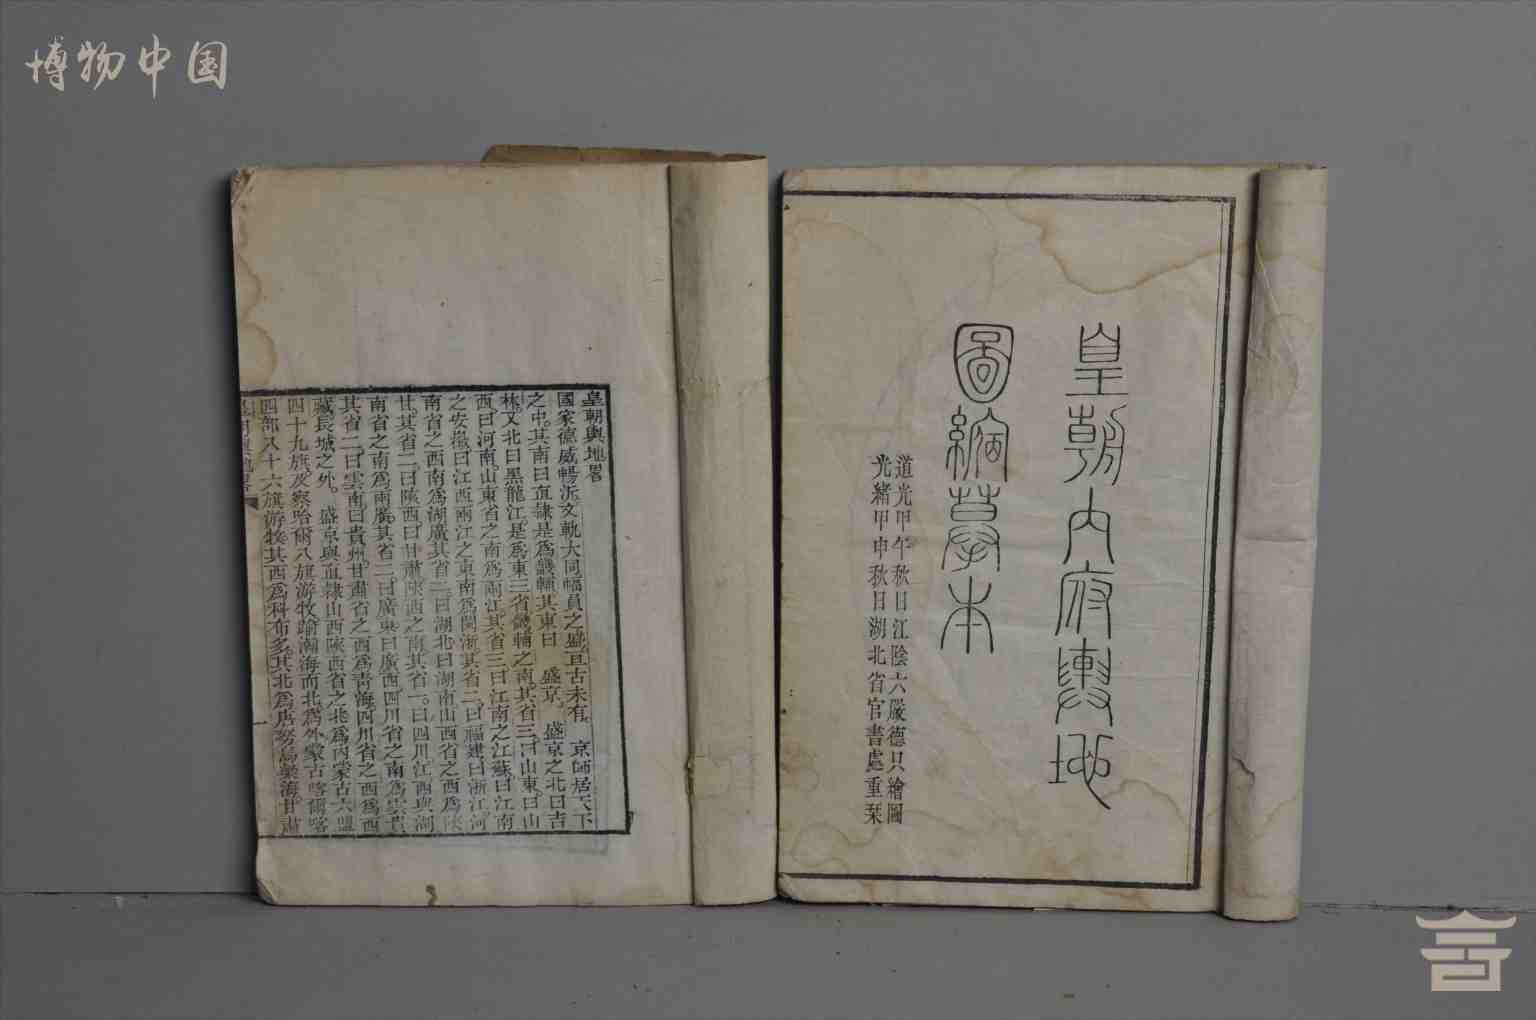 博物中国
皇朝內府輿地
圖縮摹本
道光甲午秋日江陰六嚴德只繪圖
光緒甲申秋日湖北省官書處重栞
皇朝輿地畧
國家德威暢浹文軌大同幅員之盛亘古未有京師居天下
之中其南曰直隸是爲畿輔其東曰盛京盛京之北曰吉
林又北曰黑龍江是爲東三省畿輔之南其省三曰山東曰山
西曰河南山東省之南爲兩江其省三曰江南之江蘇曰江南
之安徽曰江西兩江之東南爲閩浙其省二曰福建曰浙江河
南省之西南爲湖廣其省二曰湖北曰湖南山西省之西爲陝
甘其省二曰陝西曰甘肅陝西之南其省一曰四川江西與湖
南省之南爲兩廣其省二曰廣東曰廣西四川省之南爲雲貴
其省二曰雲南曰貴州甘肅省之西爲青海四川省之西爲西
藏長城之外盛京與直隸山西陝西省之北爲內蒙古六盟
四十九旗及察哈爾八旗游牧踰瀚海而北爲外蒙古喀爾喀
四部八十六旗游牧其西爲科布多其北爲唐努烏梁海甘肅